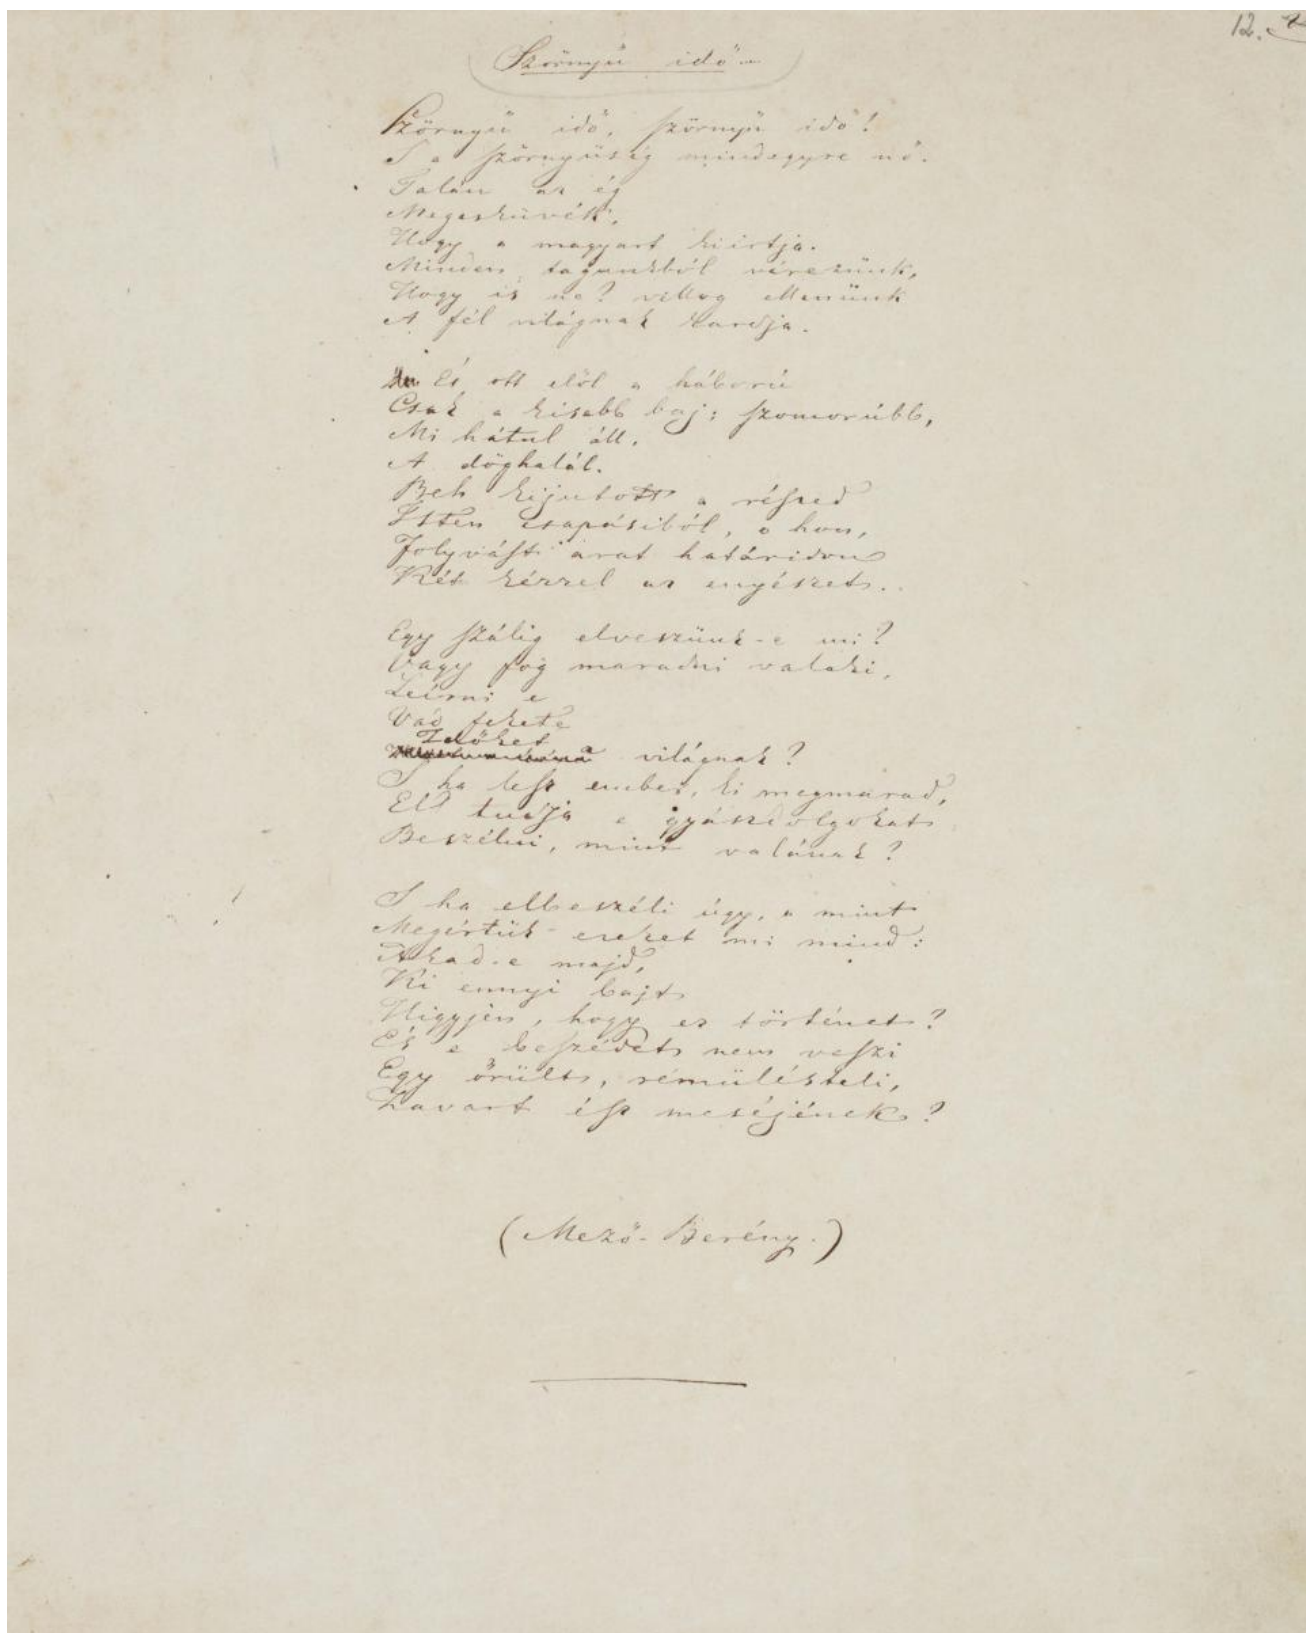 12.
Szörnyü idő...
Szörnyü idő, szörnyü idő!
S a szörnyüség mindegyre nő.
Talán az ég
Megesküvék,
Hogy a magyart kiirtja.
Minden tagunkból vérezünk,
Hogy is ne? villog ellenünk
A fél világnak kardja.
És ott elöl a háború
Csak a kisebb baj; szomorúbb,
Mi hátul áll,
A döghalál.
Beh kijutott a részed
Isten csapásiból, o hon,
Folyvást arat határidon
Két kézzel az enyészet..
Egy szálig elveszünk-e mi?
Vagy fog maradni valaki,
Leírni e
Vad fekete
Időket
a világnak?
S ha lesz ember, ki megmarad,
El tudja e gyászdolgokat
Beszélni, mint valának?
S ha elbeszéli úgy, a mint
Megértük ezeket mi mind:
Akad-e majd,
Ki ennyi bajt
Higyjen, hogy ez történet?
És e beszédet nem veszi
Egy őrült, rémülésteli,
Zavart ész meséjének?
(Mező-Berény.)